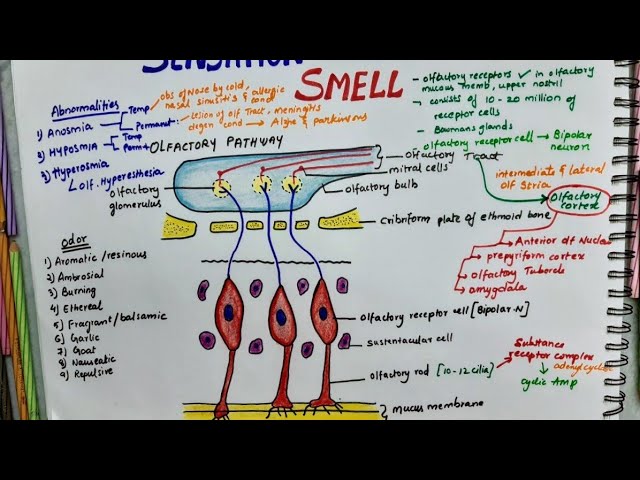 SENSATION
SMELL
Abnormalities
1) Anosmia
Temp → obs of Nose by cold, allergic
nasal sinusitis & cond
Permanent: Lesion of olf Tract, meningitis
degen cond → Alzhe & parkinsons
2) Hyposmia
Temp
Perm
3) Hyperosmia
↳ olf. Hyperesthesia
- olfactory receptors ✓ in olfactory
mucous memb, upper nostril
- consists of 10-20 million of
receptor cells
- Bowmans glands
olfactory receptor cell → Bipolar
neuron
OLFACTORY PATHWAY
Olfactory Tract
mitral cells
olfactory bulb
olfactory
glomerulus
Cribriform plate of ethmoid bone
intermediate & lateral
olf Stria
Olfactory
cortex
→ Anterior olf Nucleu
→ prepyriform cortex
→ Olfactory Tubercle
→ amygdala
odor
1) Aromatic/resinous
2) Ambrosial
3) Burning
4) Ethereal
5) Fragrant/balsamic
6) Garlic
7) Goat
8) Nauseatic
9) Repulsive
olfactory receptor cell [Bipolar-N]
sustentacular cell
olfactory rod [10-12 cilia]
Substance
receptor complex
adenylcyclase
cyclic Amp
mucus membrane